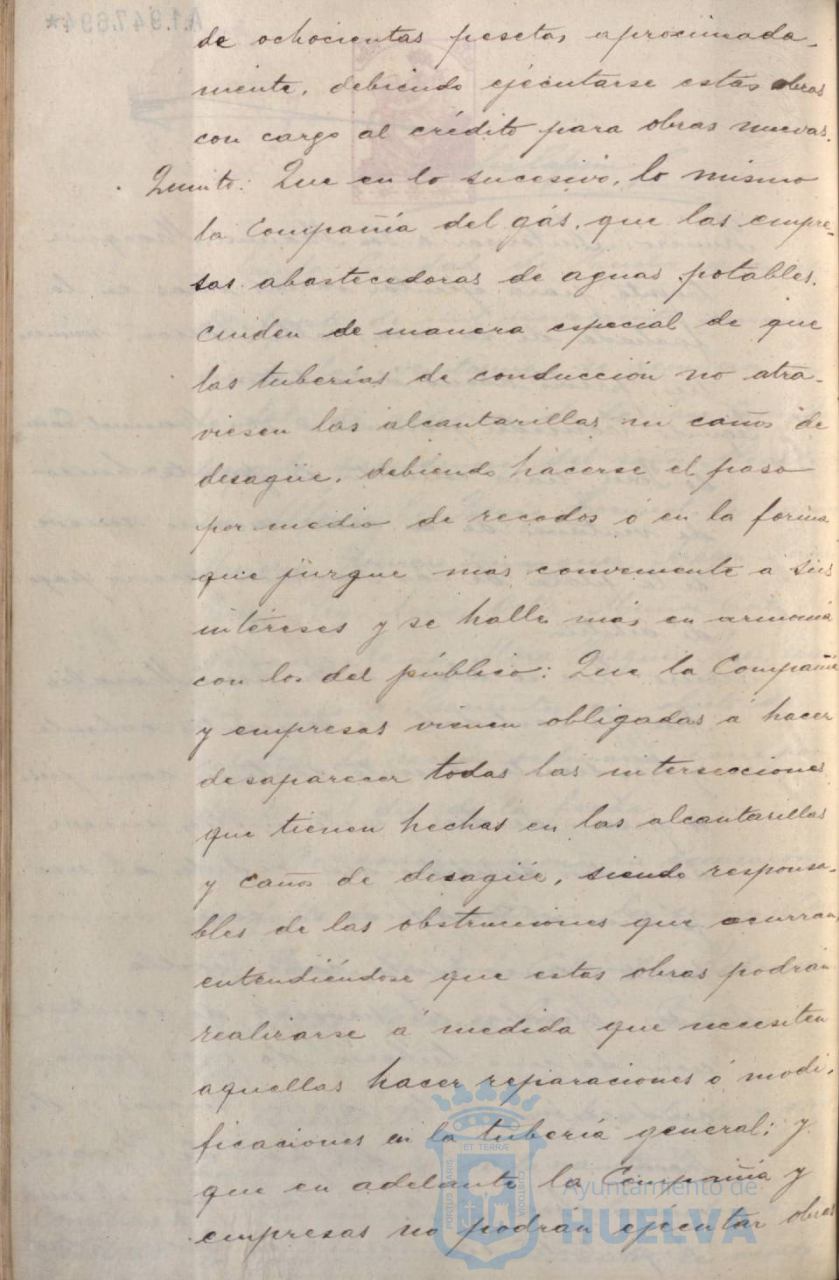 A1.947.694*
de ochocientas pesetas aproximada-
mente, debiendo ejecutarse estas obras
con cargo al crédito para obras nuevas.
Quinto: Que en lo sucesivo, lo mismo
la Compañía del gás, que las empre-
sas abastecedoras de aguas potables,
cuiden de manera especial de que
las tuberías de conducción no atra-
viesen las alcantarillas ni caños de
desagüe, debiendo hacerse el paso
por medio de recodos ó en la forma
que juzgue más conveniente a sus
intereses y se halle más en armonía
con los del público: Que la Compañía
y empresas vienen obligadas á hacer
desaparecer todas las intersecciones
que tienen hechas en las alcantarillas
y caños de desagüe, siendo responsa-
bles de las obstrucciones que ocurran,
entendiéndose que estas obras podrán
realizarse á medida que necesiten
aquellas hacer reparaciones ó modi-
ficaciones en la tubería general; y
que en adelante la Compañía y
empresas no podrán ejecutar obras
PORTUS MARIS ET TERRÆ CUSTODIA
Ayuntamiento de
HUELVA